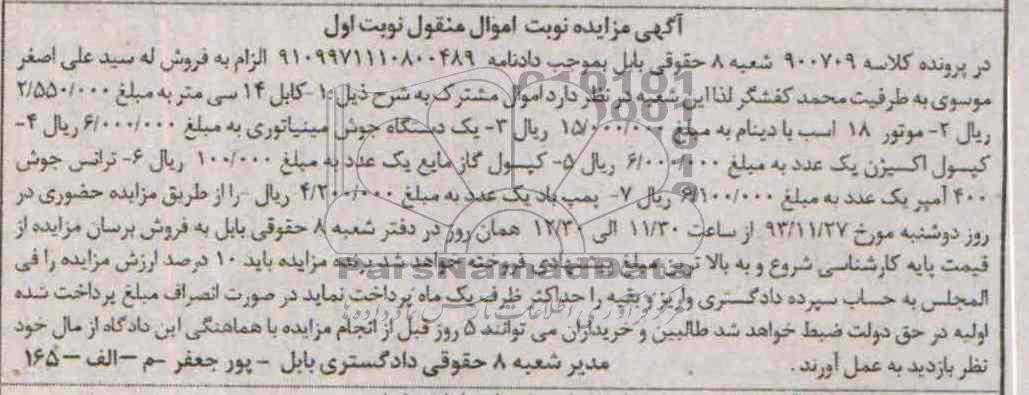 آگهی مزایده نوبت اموال منقول نوبت اول
در پرونده کلاسه ۹۰۰۷۰۹ شعبه ۸ حقوقی بابل بموجب دادنامه ۹۱۰۹۹۷۱۱۱۰۸۰۰۴۸۹ الزام به فروش له سید علی اصغر
موسوی به طرفیت محمد کفشگر لذا این شعبه در نظر دارد اموال مشترک به شرح ذیل :۱-کابل ۱۴ سی متر به مبلغ ۲/۵۵۰/۰۰۰
ریال ۲- موتور ۱۸ اسب با دینام به مبلغ ۱۵/۰۰۰/۰۰۰ ریال ۳- یک دستگاه جوش مینیاتوری به مبلغ ۶/۰۰۰/۰۰۰ ریال ۴-
کپسول اکسیژن یک عدد به مبلغ ۶/۰۰۰/۰۰۰ ریال ۵- کپسول گاز مایع یک عدد به مبلغ ۱۰۰/۰۰۰ ریال ۶- ترانس جوش
۴۰۰ آمپر یک عدد به مبلغ ۶/۱۰۰/۰۰۰ ریال ۷- پمپ باد یک عدد به مبلغ ۴/۲۰۰/۰۰۰ ریال -را از طریق مزایده حضوری در
روز دوشنبه مورخ ۹۳/۱۱/۲۷ از ساعت ۱۱/۳۰ الی ۱۲/۳۰ همان روز در دفتر شعبه ۸ حقوقی بابل به فروش برسان مزایده از
قیمت پایه کارشناسی شروع و به بالا ترین مبلغ پیشنهادی فروخته خواهد شد برنده مزایده باید ۱۰ درصد ارزش مزایده را فی
المجلس به حساب سپرده دادگستری واریز و بقیه را حداکثر ظرف یک ماه پرداخت نماید در صورت انصراف مبلغ پرداخت شده
اولیه در حق دولت ضبط خواهد شد طالبین و خریداران می توانند ۵ روز قبل از انجام مزایده با هماهنگی این دادگاه از مال خود
نظر بازدید به عمل آورند . مدیر شعبه ۸ حقوقی دادگستری بابل - پور جعفر -م-الف -۱۶۵
ParsNamadData